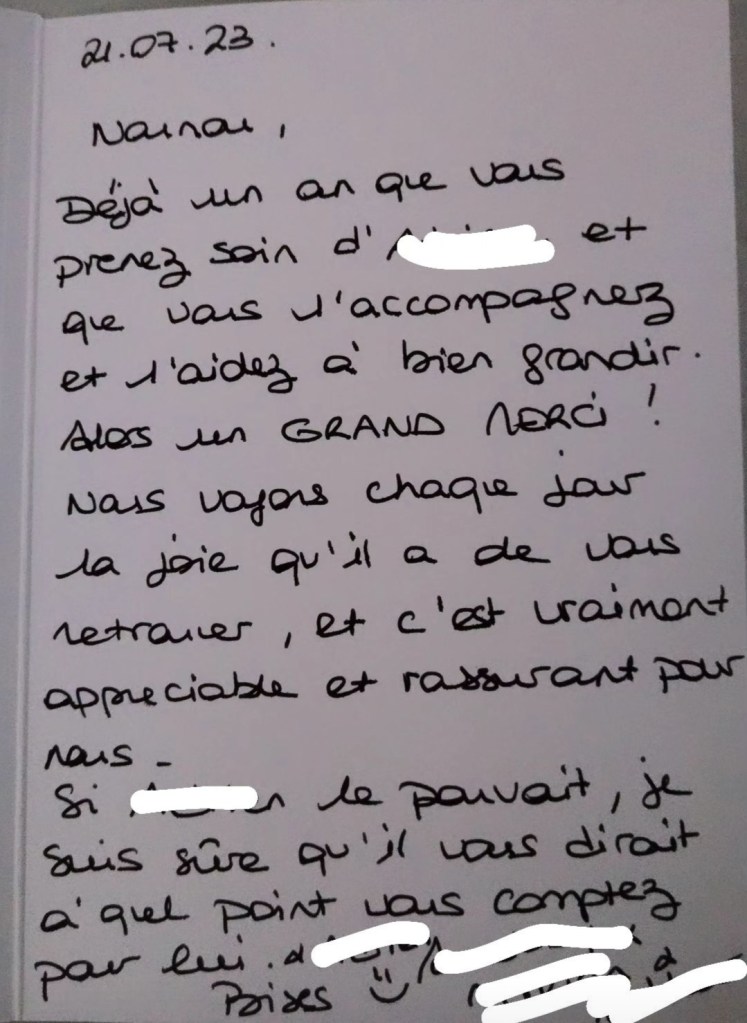 21.07.23.
Nainai,
Déjà un an que vous
prenez soin d' et
que vous l'accompagnez
et l'aidez à bien grandir.
Alors un GRAND MERCI !
Nous voyons chaque jour
la joie qu'il a de vous
retrouver, et c'est vraiment
appreciable et rassurant pour
nous -
Si le pouvait, je
suis sûre qu'il vous dirait
à quel point vous comptez
pour lui.
Bises